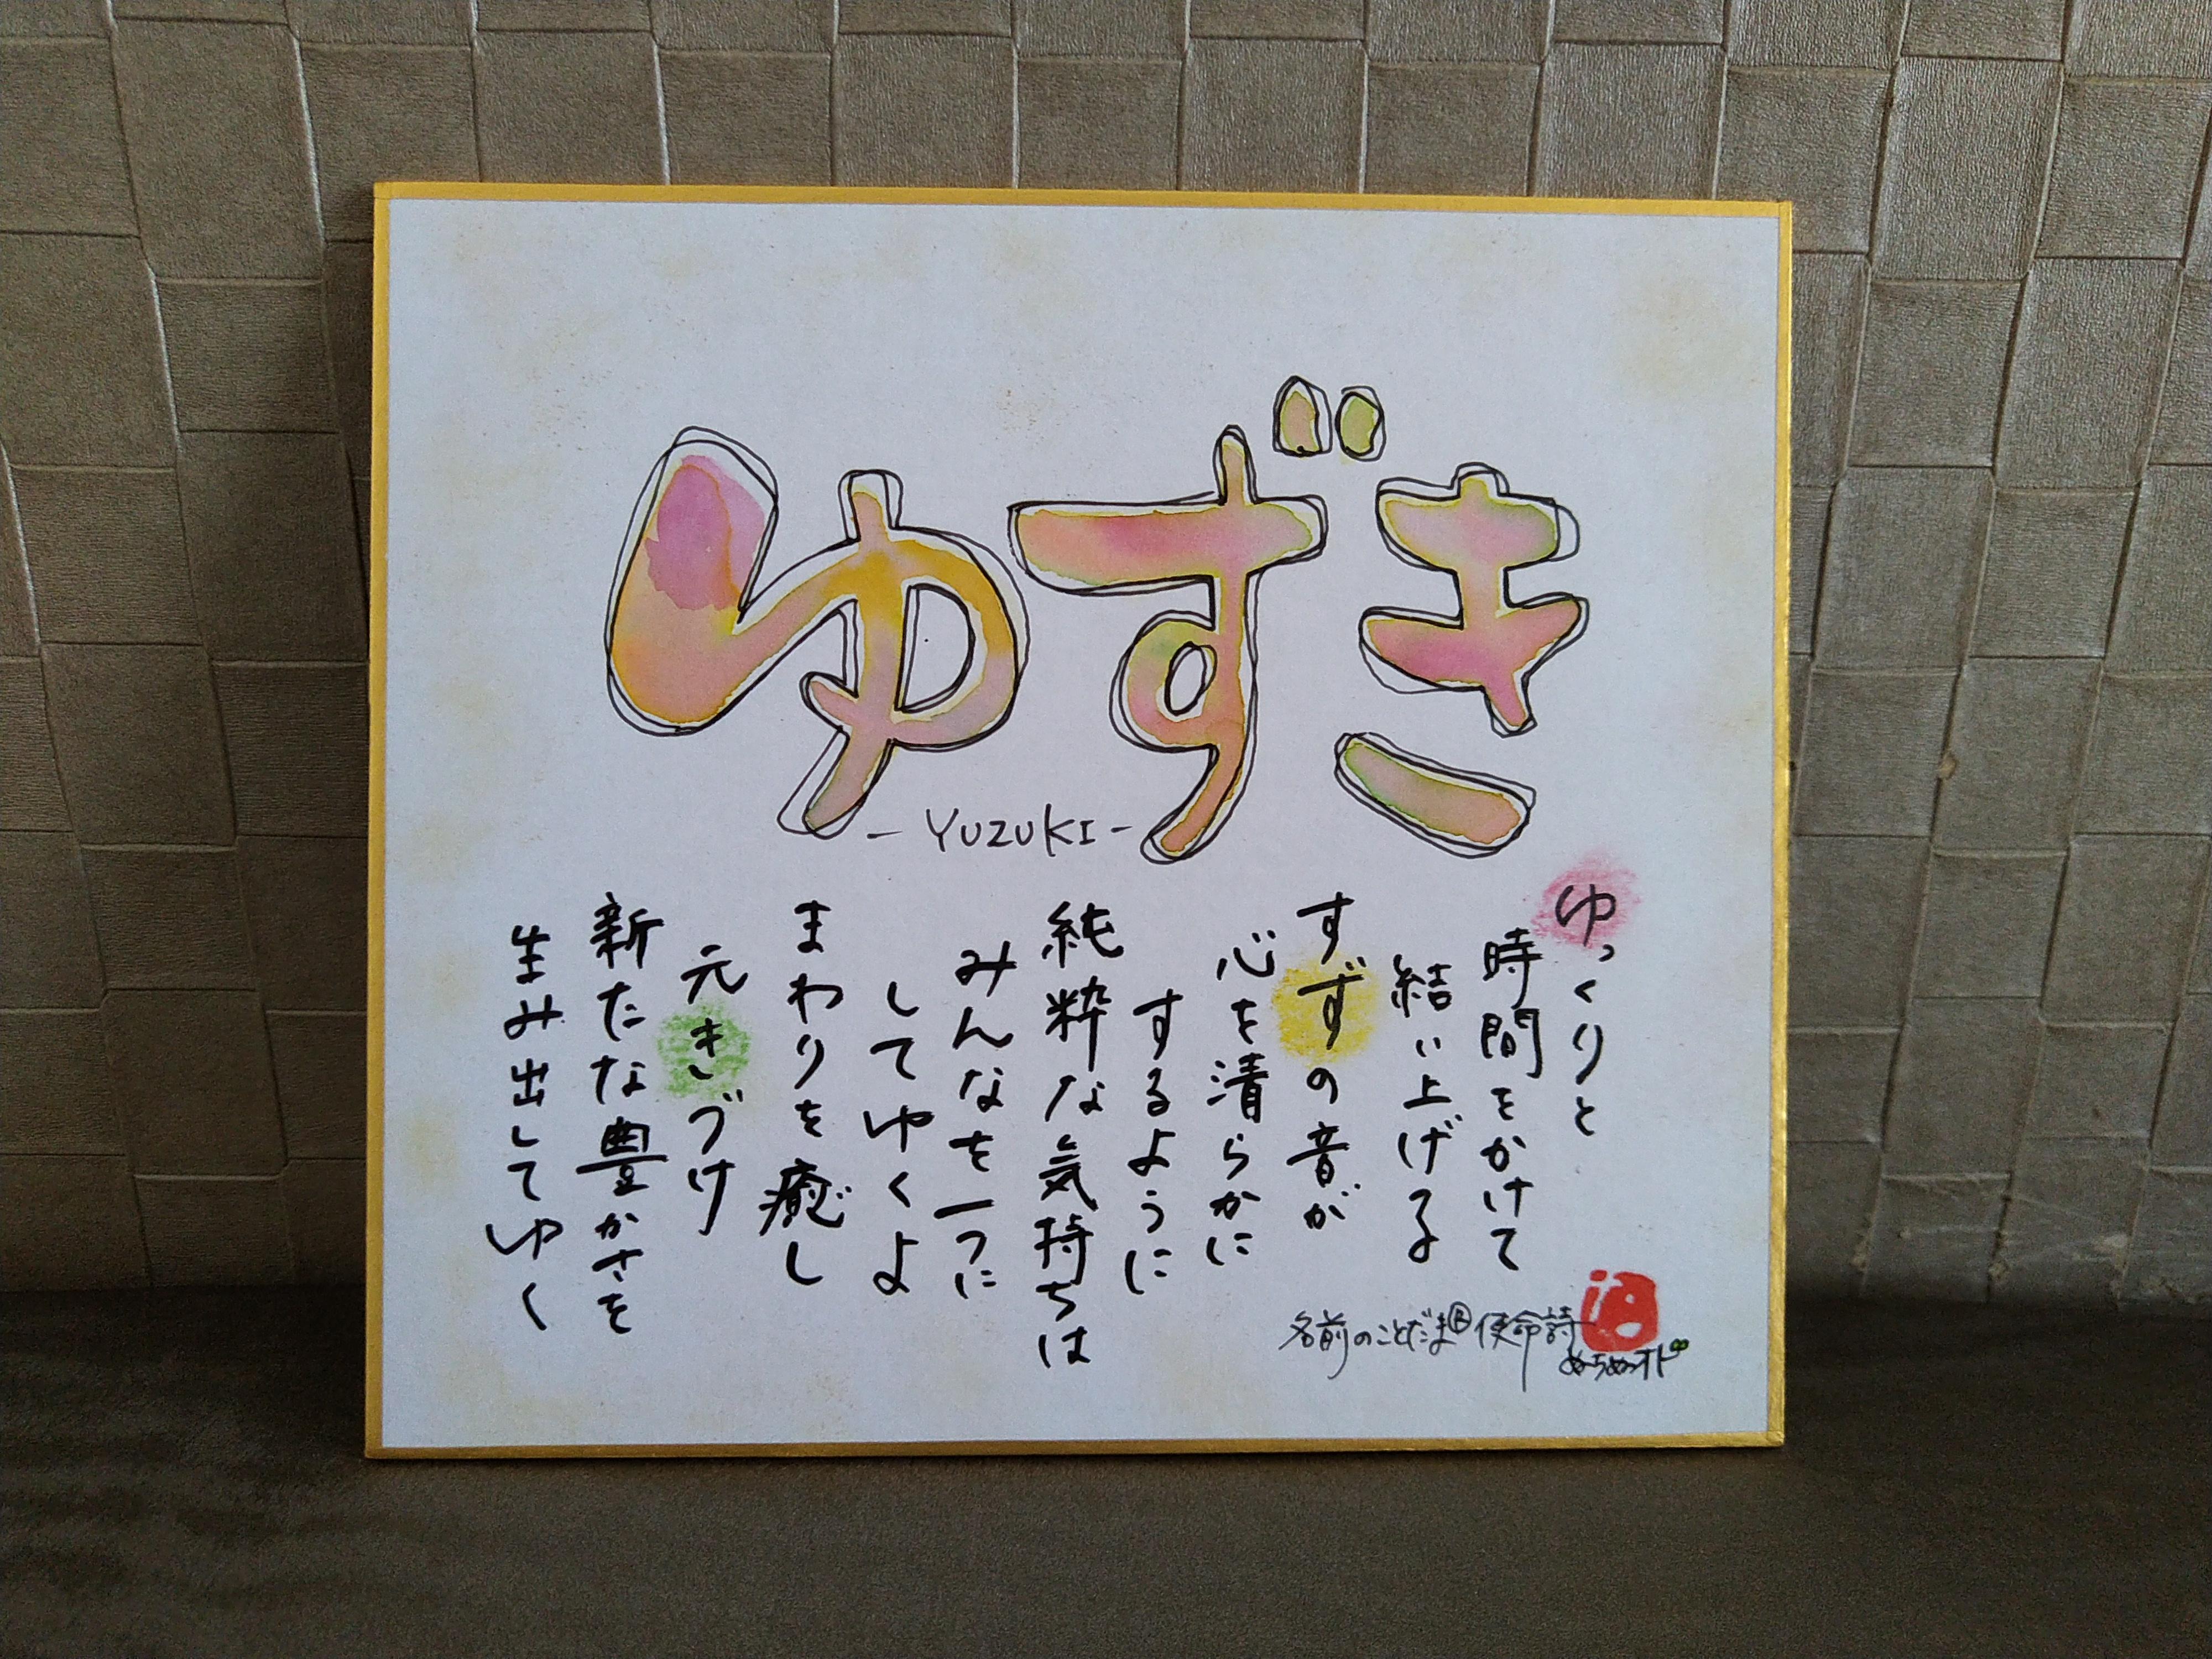 ゆずき
-YUZUKI-
ゆっくりと
時間をかけて
結い上げる
すずの音が
心を清らかに
するように
純粋な気持ちは
みんなを一つに
してゆくよ
まわりを癒し
元きづけ
新たな豊かさを
生み出してゆく
名前のことだま®使命詩